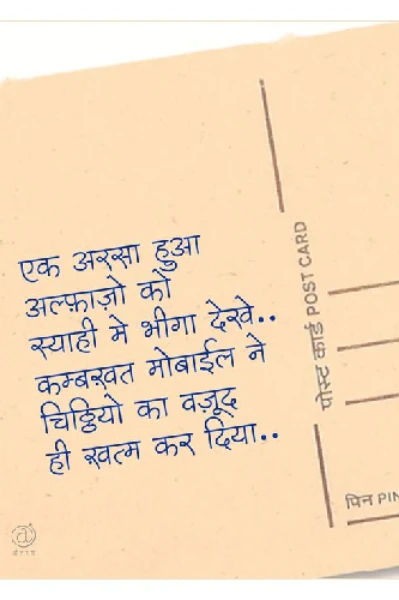 एक अरसा हुआ
अल्फ़ाज़ो को
स्याही मे भीगा देखे..
कम्बख़्वत मोबाईल ने
चिठ्ठियो का वज़ूद
ही ख़्वत्म कर दिया..
पोस्ट कार्ड POST CARD
पिन PIN